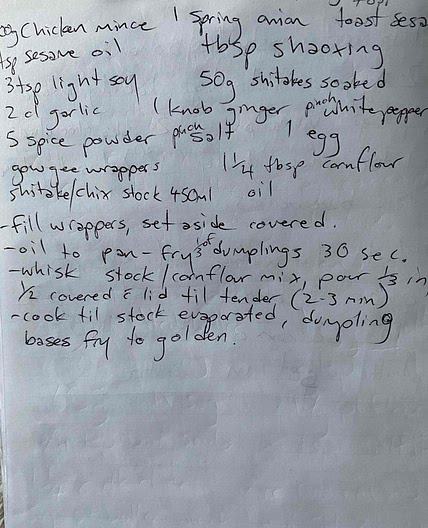 Chicken mince 1 spring onion toast sesa
tsp sesame oil tbsp shaoxing
3 tsp light soy 50g shitakes soaked
2 cl garlic 1 knob ginger pinch white pepper
5 spice powder pinch salt 1 egg
gow gee wrappers 1 1/4 tbsp cornflour
shitake/chix stock 450ml oil
-fill wrappers, set aside covered.
-oil to pan-fry 1/3 of dumplings 30 sec.
-whisk stock/cornflour mix, pour 1/3 in,
1/2 covered c̄ lid til tender (2-3 min)
-cook til stock evaporated, dumpling
bases fry to golden.